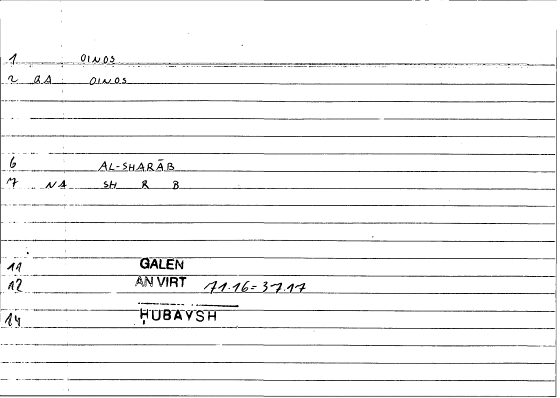 1 OINOS
2 GA OINOS
6 AL-SHARĀB
7 NA SH R B
11 GALEN
12 AN VIRT 71.16=37.17
14 ḤUBAYSH